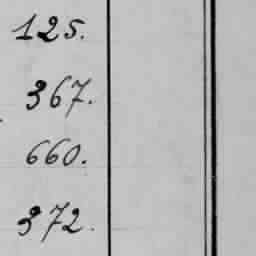 125.
367.
660.
372.